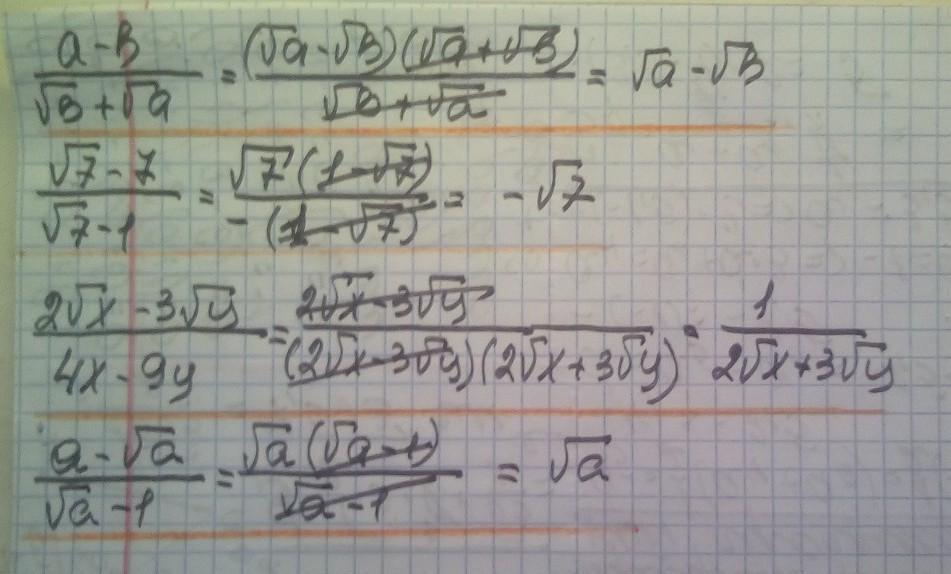 (a - b)/(√b + √a) = (√a - √b)(√a + √b)/(√b + √a) = √a - √b
(√7 - 7)/(√7 - 1) = √7(1 - √7)/(-(1 - √7)) = - √7
(2√x - 3√y)/(4x - 9y) = (2√x - 3√y)/((2√x - 3√y)(2√x + 3√y)) = 1/(2√x + 3√y)
(a - √a)/(√a - 1) = √a(√a - 1)/(√a - 1) = √a